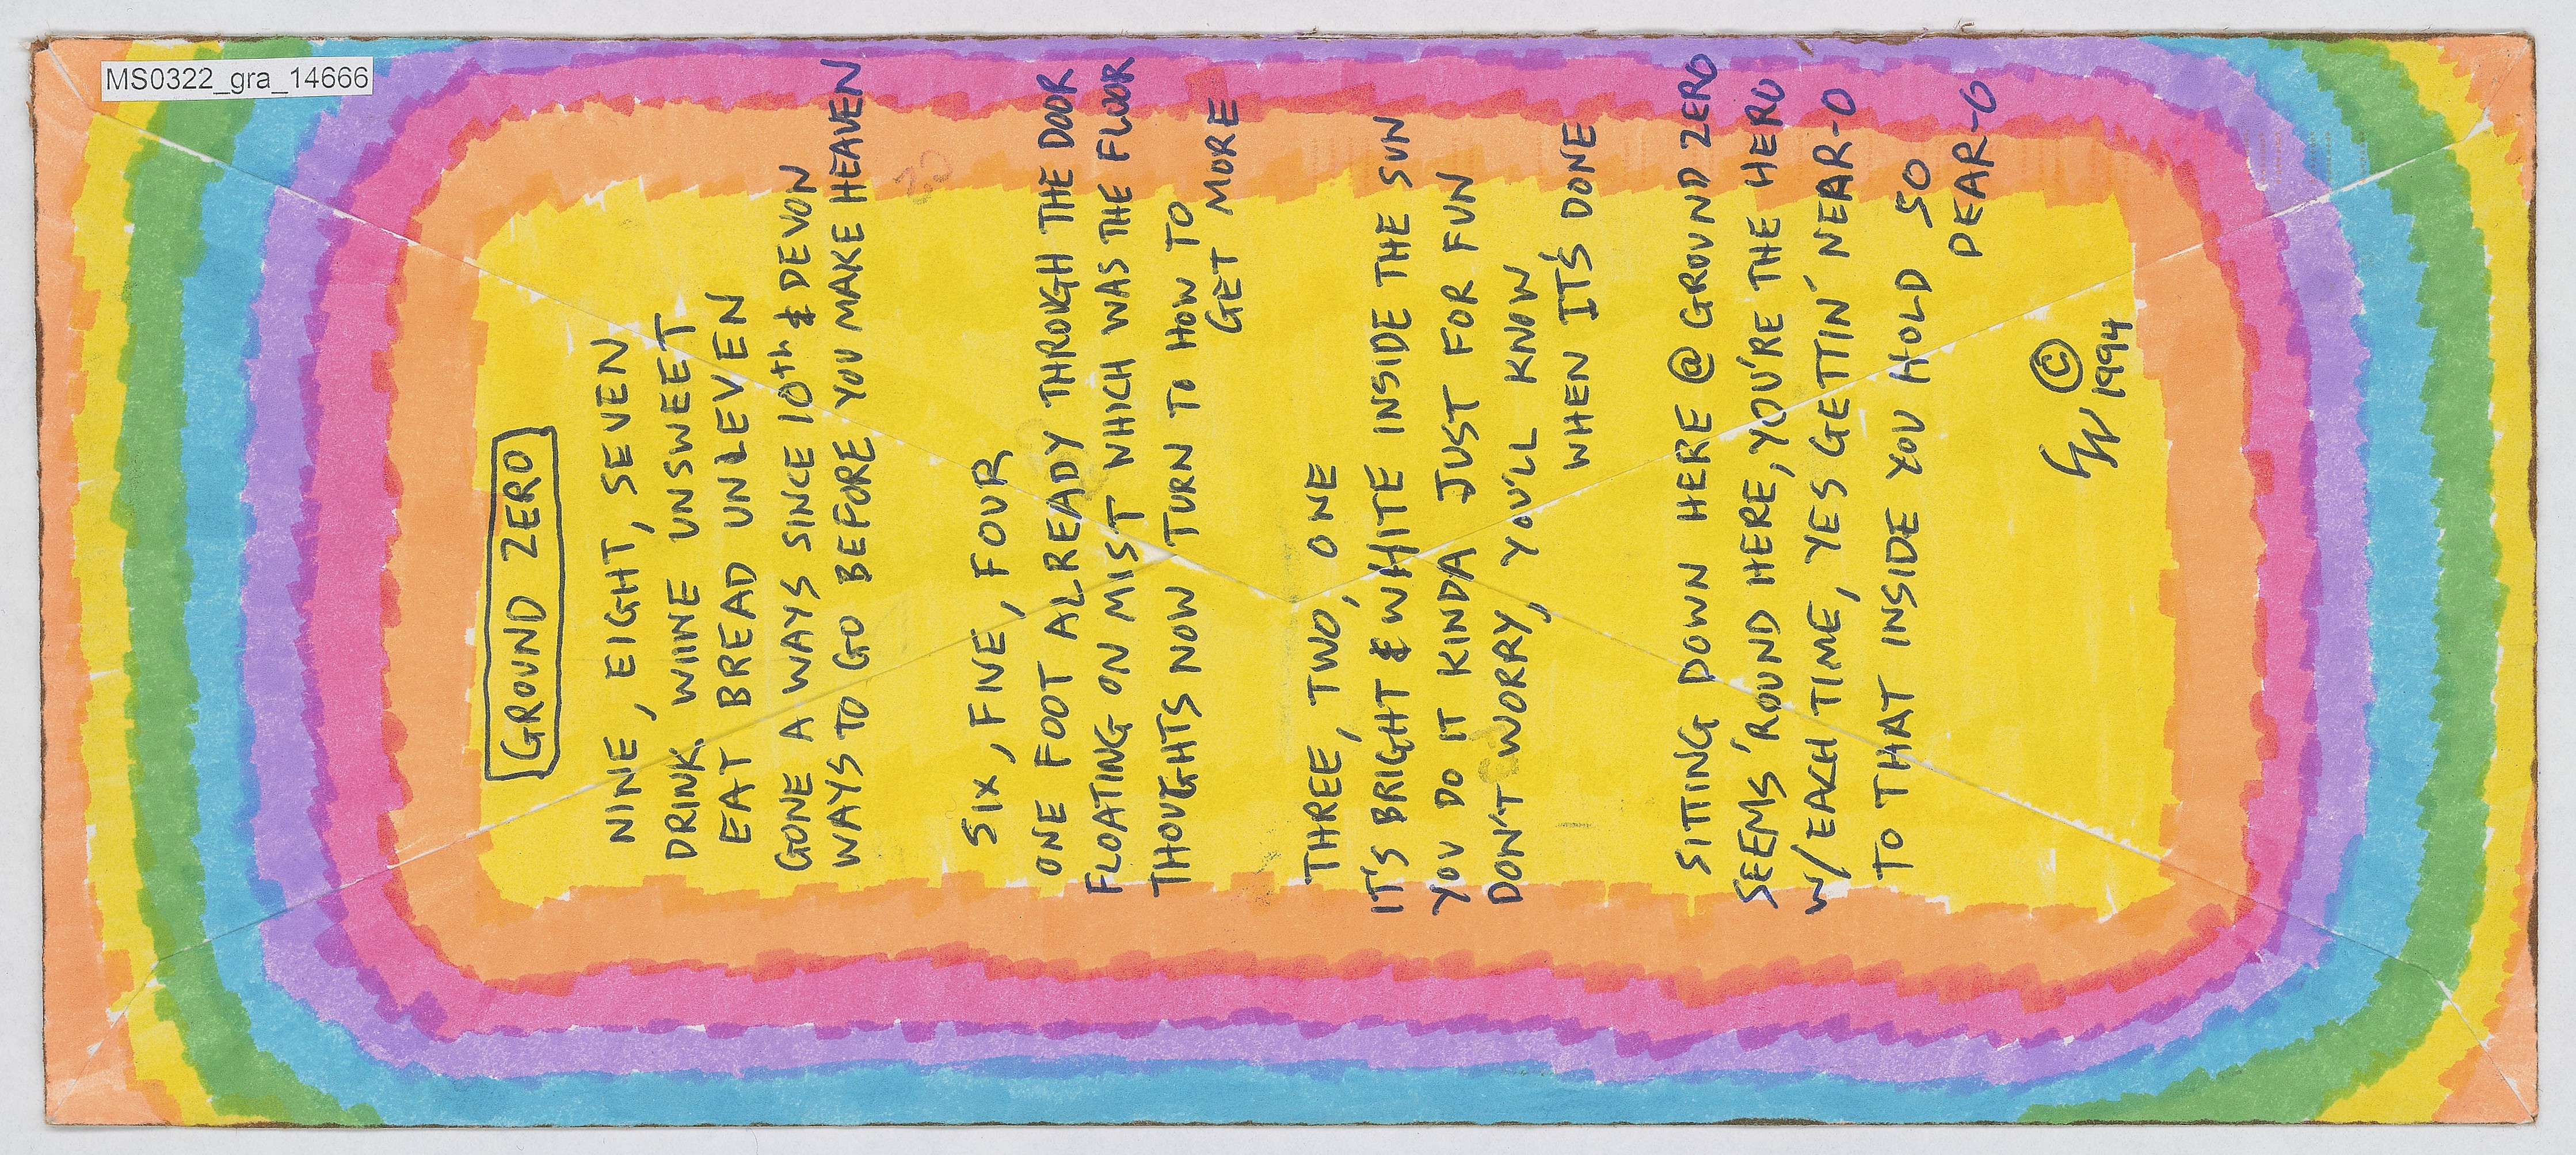 MS0322_gra_14666
GROUND ZERO
NINE, EIGHT, SEVEN
DRINK WINE UNSWEET
EAT BREAD UNLEVEN
GONE A WAYS SINCE 10th & DEVON
WAYS TO GO BEFORE YOU MAKE HEAVEN
SIX, FIVE, FOUR
ONE FOOT ALREADY THROUGH THE DOOR
FLOATING ON MIST WHICH WAS THE FLOOR
THOUGHTS NOW TURN TO HOW TO
GET MORE
THREE, TWO, ONE
IT'S BRIGHT & WHITE INSIDE THE SUN
YOU DO IT KINDA JUST FOR FUN
DON'T WORRY, YOU'LL KNOW
WHEN IT'S DONE
SITTING DOWN HERE @ GROUND ZERO
SEEMS 'ROUND HERE, YOU'RE THE HERO
W/EACH TIME, YES GETTIN' NEAR-O
TO THAT INSIDE YOU HOLD SO
DEAR-O
©
1994